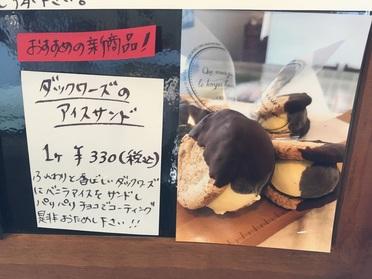 おすすめの新商品!
ダックワーズの
アイスサンド
1ヶ ¥330(税込)
ふんわりと香ばしいダックワーズ
にバニラアイスをサンドし
パリパリチョコでコーティング
是非おためし下さい!!